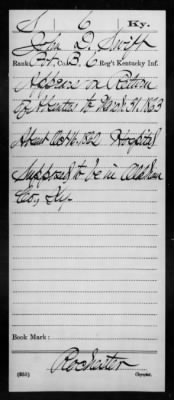 S 6 Ky.
John D. Swift
Rank Pvt. Co. B. 6 Reg't Kentucky Inf.
Appears on Return
to March 31, 1863
Absent Oct 16, 1862 Hospital
Supposed to be in
Co, Ky.
Book Mark:
Rochester
(653) Copyist.